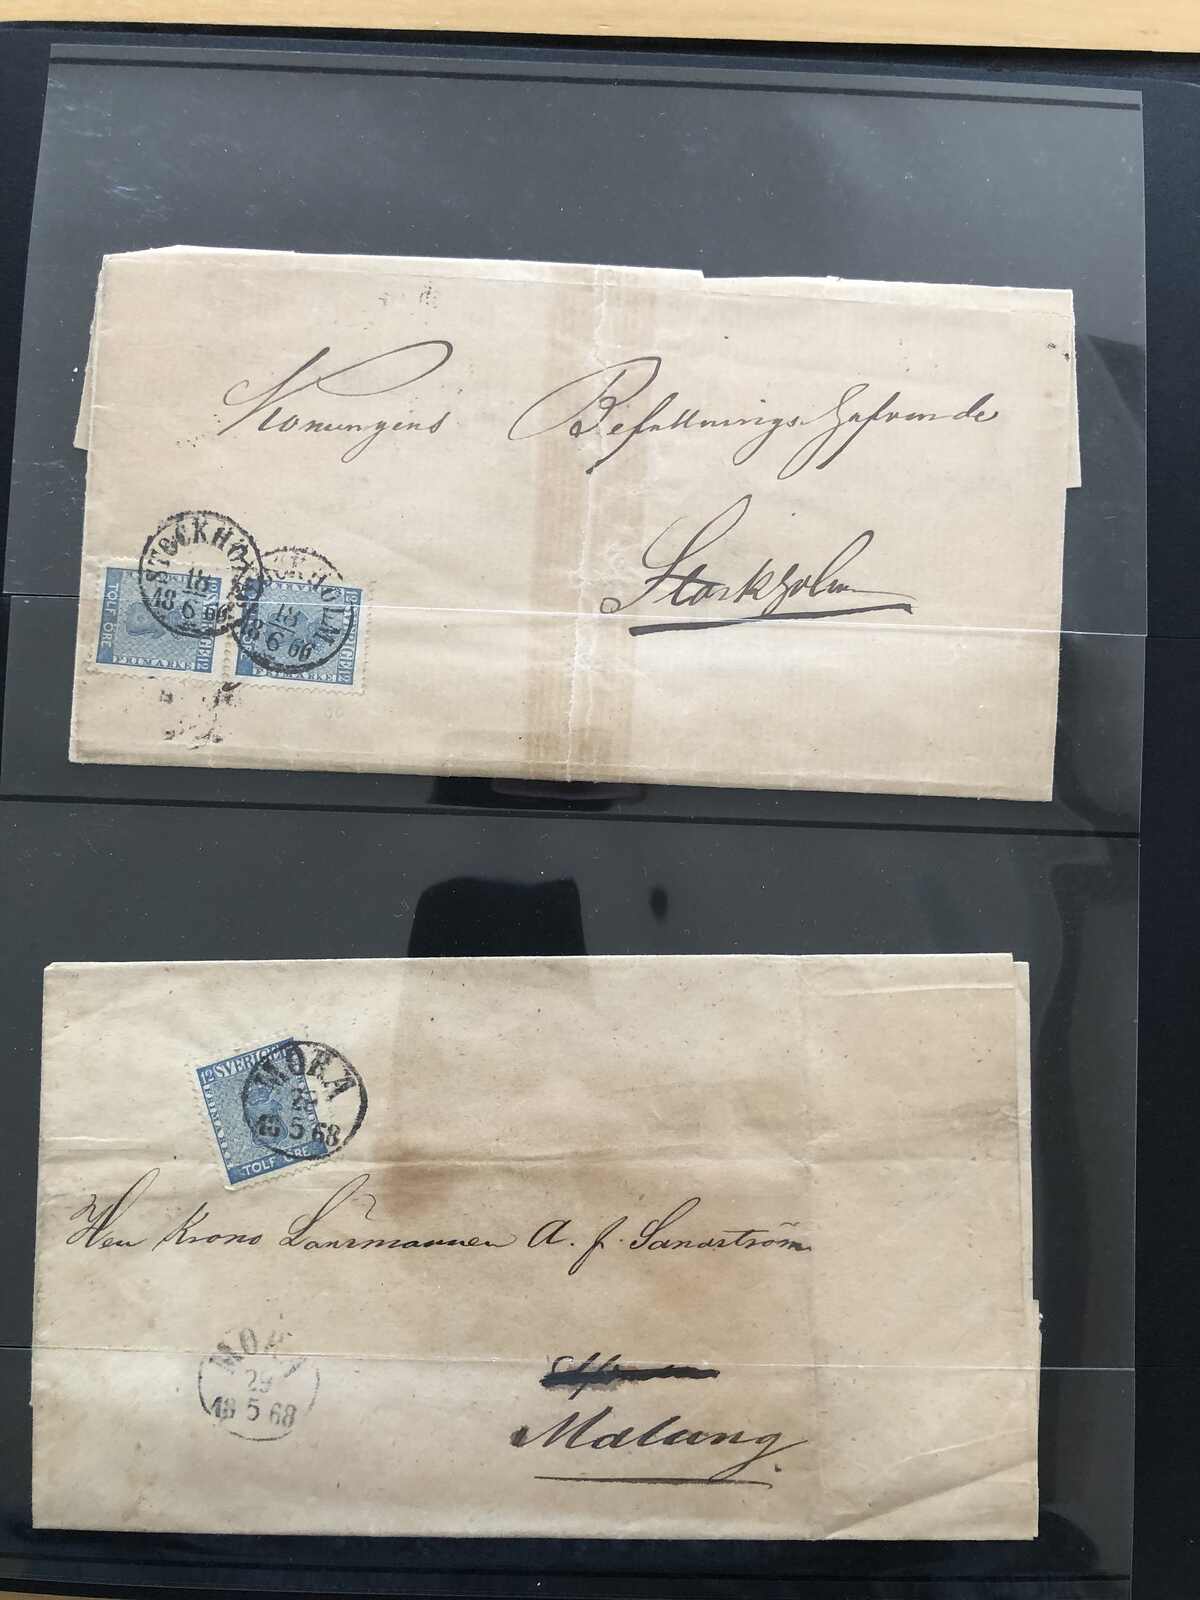 Konungens Befallningshafvande
Stockholm
STOCKHOLM
18
18 6 66
STOCKHOLM
18
18 6 66
TOLF ÖRE
FRIMARKE
12
SVERIGE
12
FRIMARKE
12
12 SVERIGE
FRIMARKE
TOLF ÖRE
MORA
18 5 68
Herr Krono Länsmannen A. F. Sandström
MORA
29
18 5 68
Malung